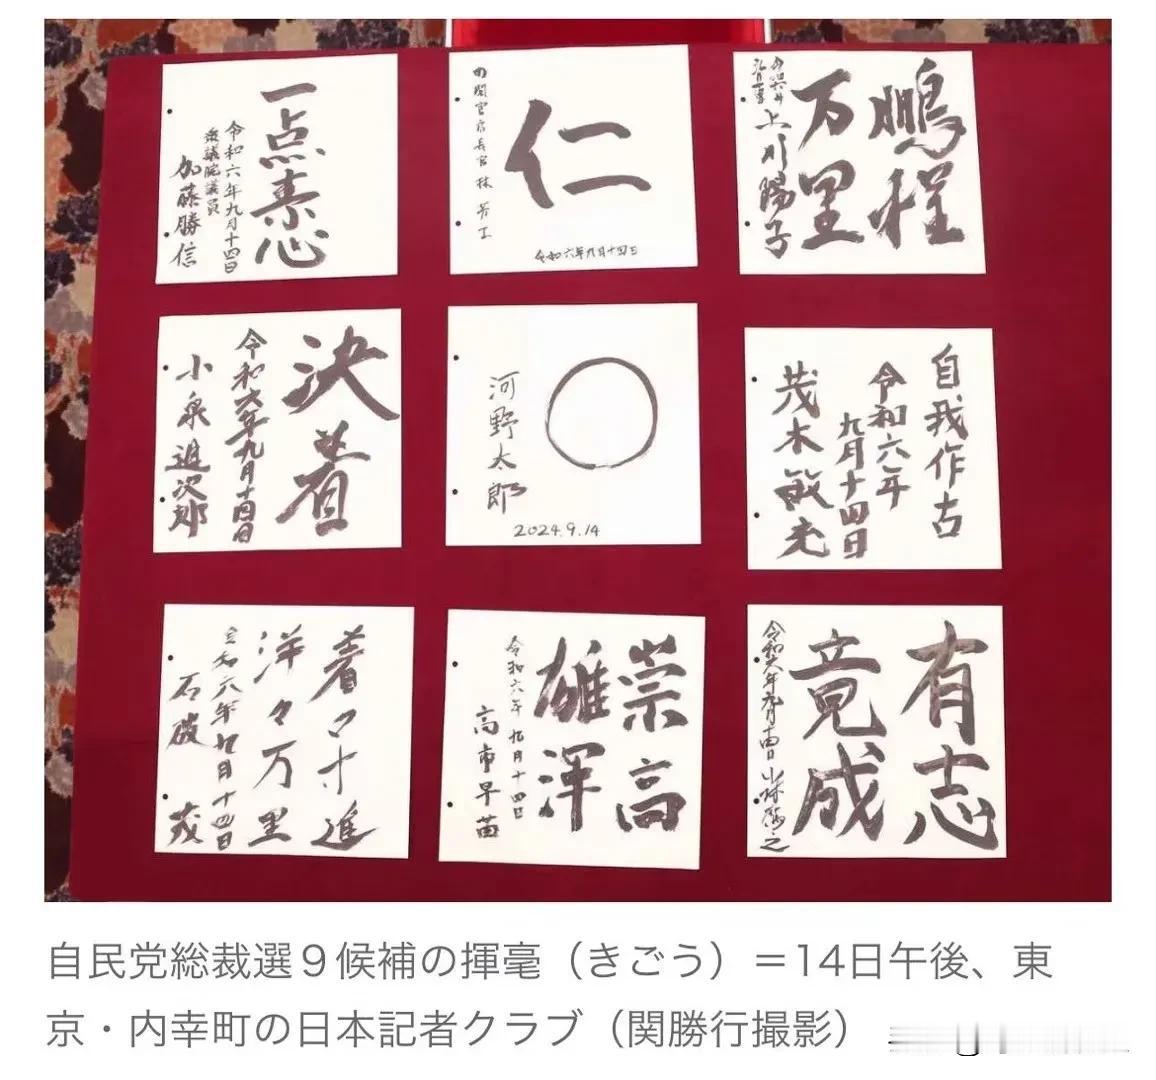 一点素心
令和六年九月十四日
衆議院議員
加藤勝信
仁
内閣官房長官 林 芳正
令和六年九月十四日
鵬程
万里
上川陽子
決着
令和六年九月十四日
小泉進次郎
〇
河野太郎
2024.9.14
自我作古
令和六年
九月十四日
茂木敏充
着々寸進
洋々万里
令和六年九月十四日
石破 茂
崇高
雄渾
令和六年九月十四日
高市早苗
有志
竟成
令和六年九月十四日 小林鷹之
自民党総裁選９候補の揮毫（きごう）＝14日午後、東
京・内幸町の日本記者クラブ（関勝行撮影）